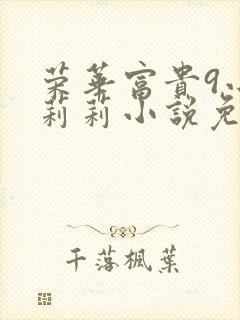 荣華富貴9.
莉莉小說免
千落楓葉